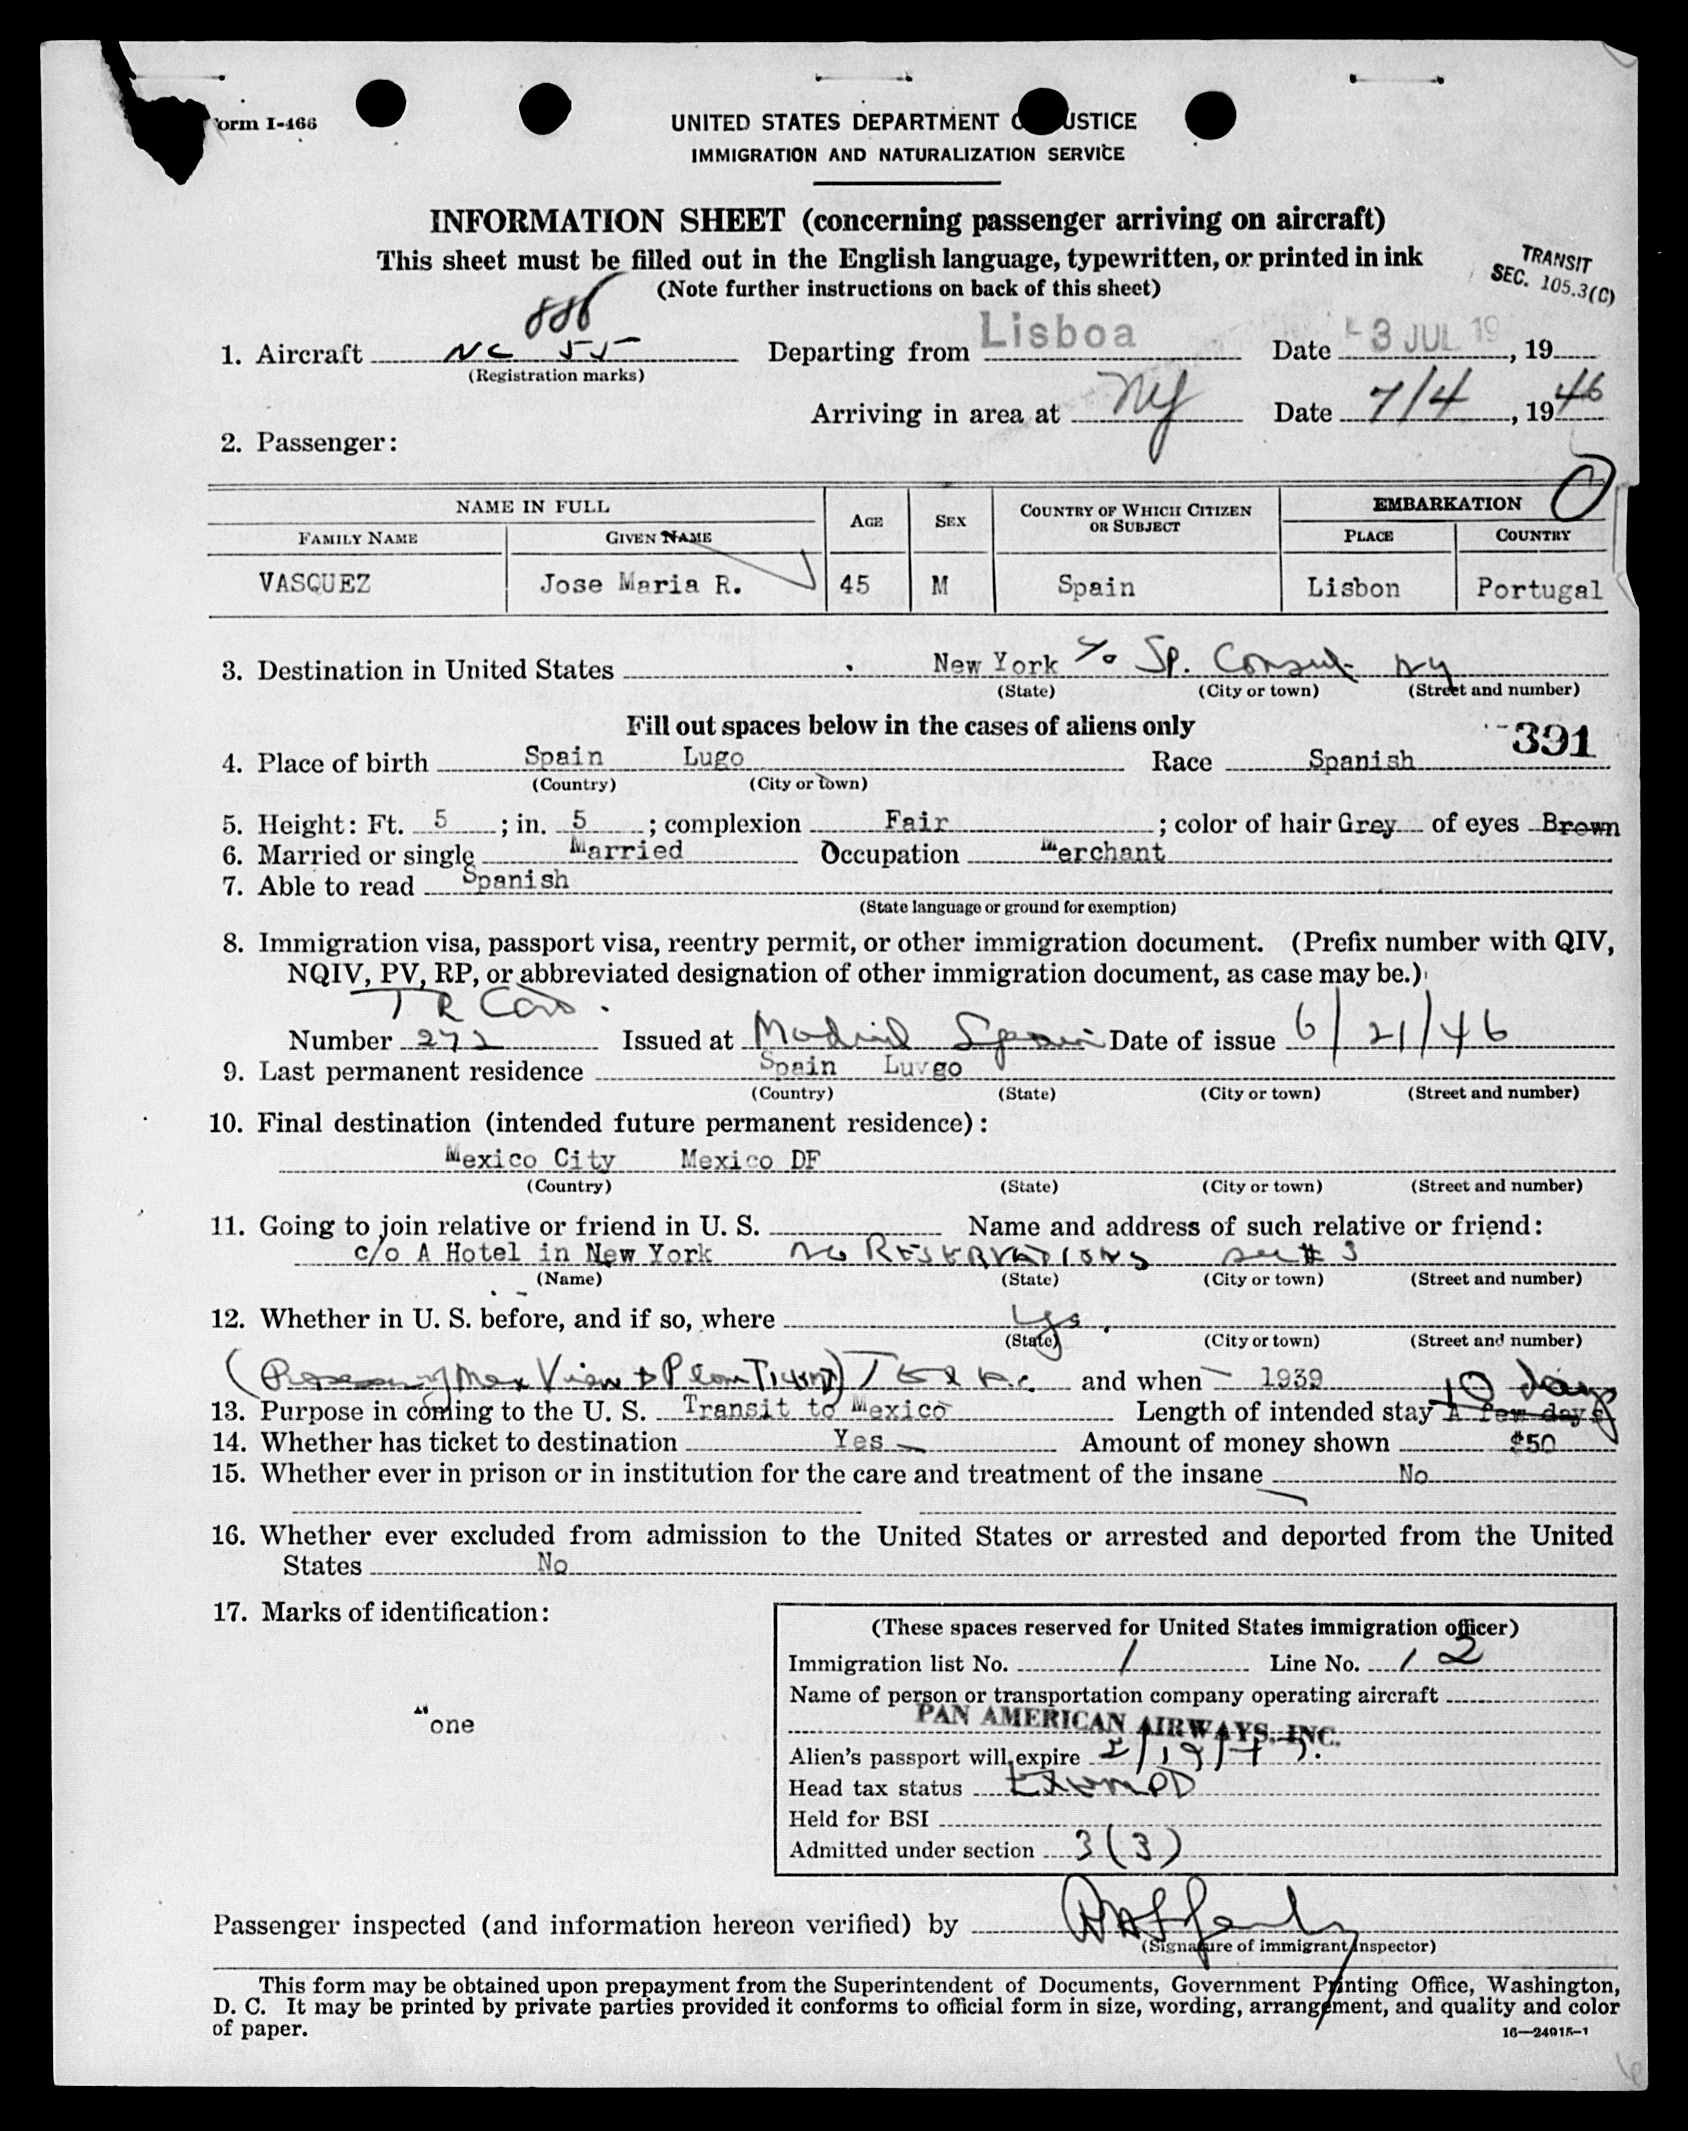 Form I-466
UNITED STATES DEPARTMENT OF JUSTICE
IMMIGRATION AND NATURALIZATION SERVICE
INFORMATION SHEET (concerning passenger arriving on aircraft)
This sheet must be filled out in the English language, typewritten, or printed in ink
(Note further instructions on back of this sheet)
TRANSIT
SEC. 105.3(C)
1. Aircraft NC 886 Departing from Lisboa Date 3 JUL 19 , 19
(Registration marks)
Arriving in area at NY Date 7/4, 1946
2. Passenger:
NAME IN FULL AGE SEX COUNTRY OF WHICH CITIZEN OR SUBJECT EMBARKATION
FAMILY NAME GIVEN NAME PLACE COUNTRY
VASQUEZ Jose Maria R. 45 M Spain Lisbon Portugal
3. Destination in United States New York c/o Sp. Consul NY
(State) (City or town) (Street and number)
Fill out spaces below in the cases of aliens only
391
4. Place of birth Spain Lugo Race Spanish
(Country) (City or town)
5. Height: Ft. 5; in. 5; complexion Fair; color of hair Grey of eyes Brown
6. Married or single Married Occupation Merchant
7. Able to read Spanish
(State language or ground for exemption)
8. Immigration visa, passport visa, reentry permit, or other immigration document. (Prefix number with QIV,
NQIV, PV, RP, or abbreviated designation of other immigration document, as case may be.)
TR
Number 272 Issued at Madrid Spain Date of issue 6/21/46
9. Last permanent residence Spain Luvgo
(Country) (State) (City or town) (Street and number)
10. Final destination (intended future permanent residence):
Mexico City Mexico DF
(Country) (State) (City or town) (Street and number)
11. Going to join relative or friend in U. S. Name and address of such relative or friend:
c/o A Hotel in New York NO RESERVATIONS see #3
(Name) (State) (City or town) (Street and number)
12. Whether in U. S. before, and if so, where Yes.
(State) (City or town) (Street and number)
and when 1939
13. Purpose in coming to the U. S. Transit to Mexico Length of intended stay A few days 10 days
14. Whether has ticket to destination Yes Amount of money shown $50
15. Whether ever in prison or in institution for the care and treatment of the insane No
16. Whether ever excluded from admission to the United States or arrested and deported from the United
States No
17. Marks of identification:
None
(These spaces reserved for United States immigration officer)
Immigration list No. 1 Line No. 12
Name of person or transportation company operating aircraft
PAN AMERICAN AIRWAYS, INC.
Alien's passport will expire
Head tax status
Held for BSI
Admitted under section 3(3)
Passenger inspected (and information hereon verified) by
(Signature of immigrant inspector)
This form may be obtained upon prepayment from the Superintendent of Documents, Government Printing Office, Washington,
D. C. It may be printed by private parties provided it conforms to official form in size, wording, arrangement, and quality and color
of paper.
16—24915-1